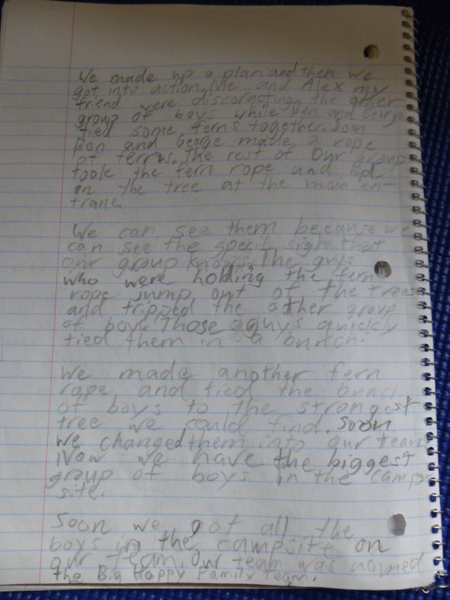 We made up a plan and then we
got into action. Me and Alex my
friend were discorasing the other
group of boys while Ben and George
tied some ferns together. Soon
Ben and George made a rope
of ferns. The rest of our group
took the fern rope and hid
in the tree at the main en-
trane.
We can see them because we
can see the specil sighn that
our group knows. The guys
who were holding the fern
rope jump out of the trees
and tripped the other group
of boys. Those guys quickly
tied them in a bunch.
We made another fern
rope and tied the bunch
of boys to the strongest
tree we could find. Soon
we changed them into our team.
Now we have the biggest
group of boys in the camp
site.
Soon we got all the
boys in the campsite on
our team. Our team was named
The Big Happy Family Team.